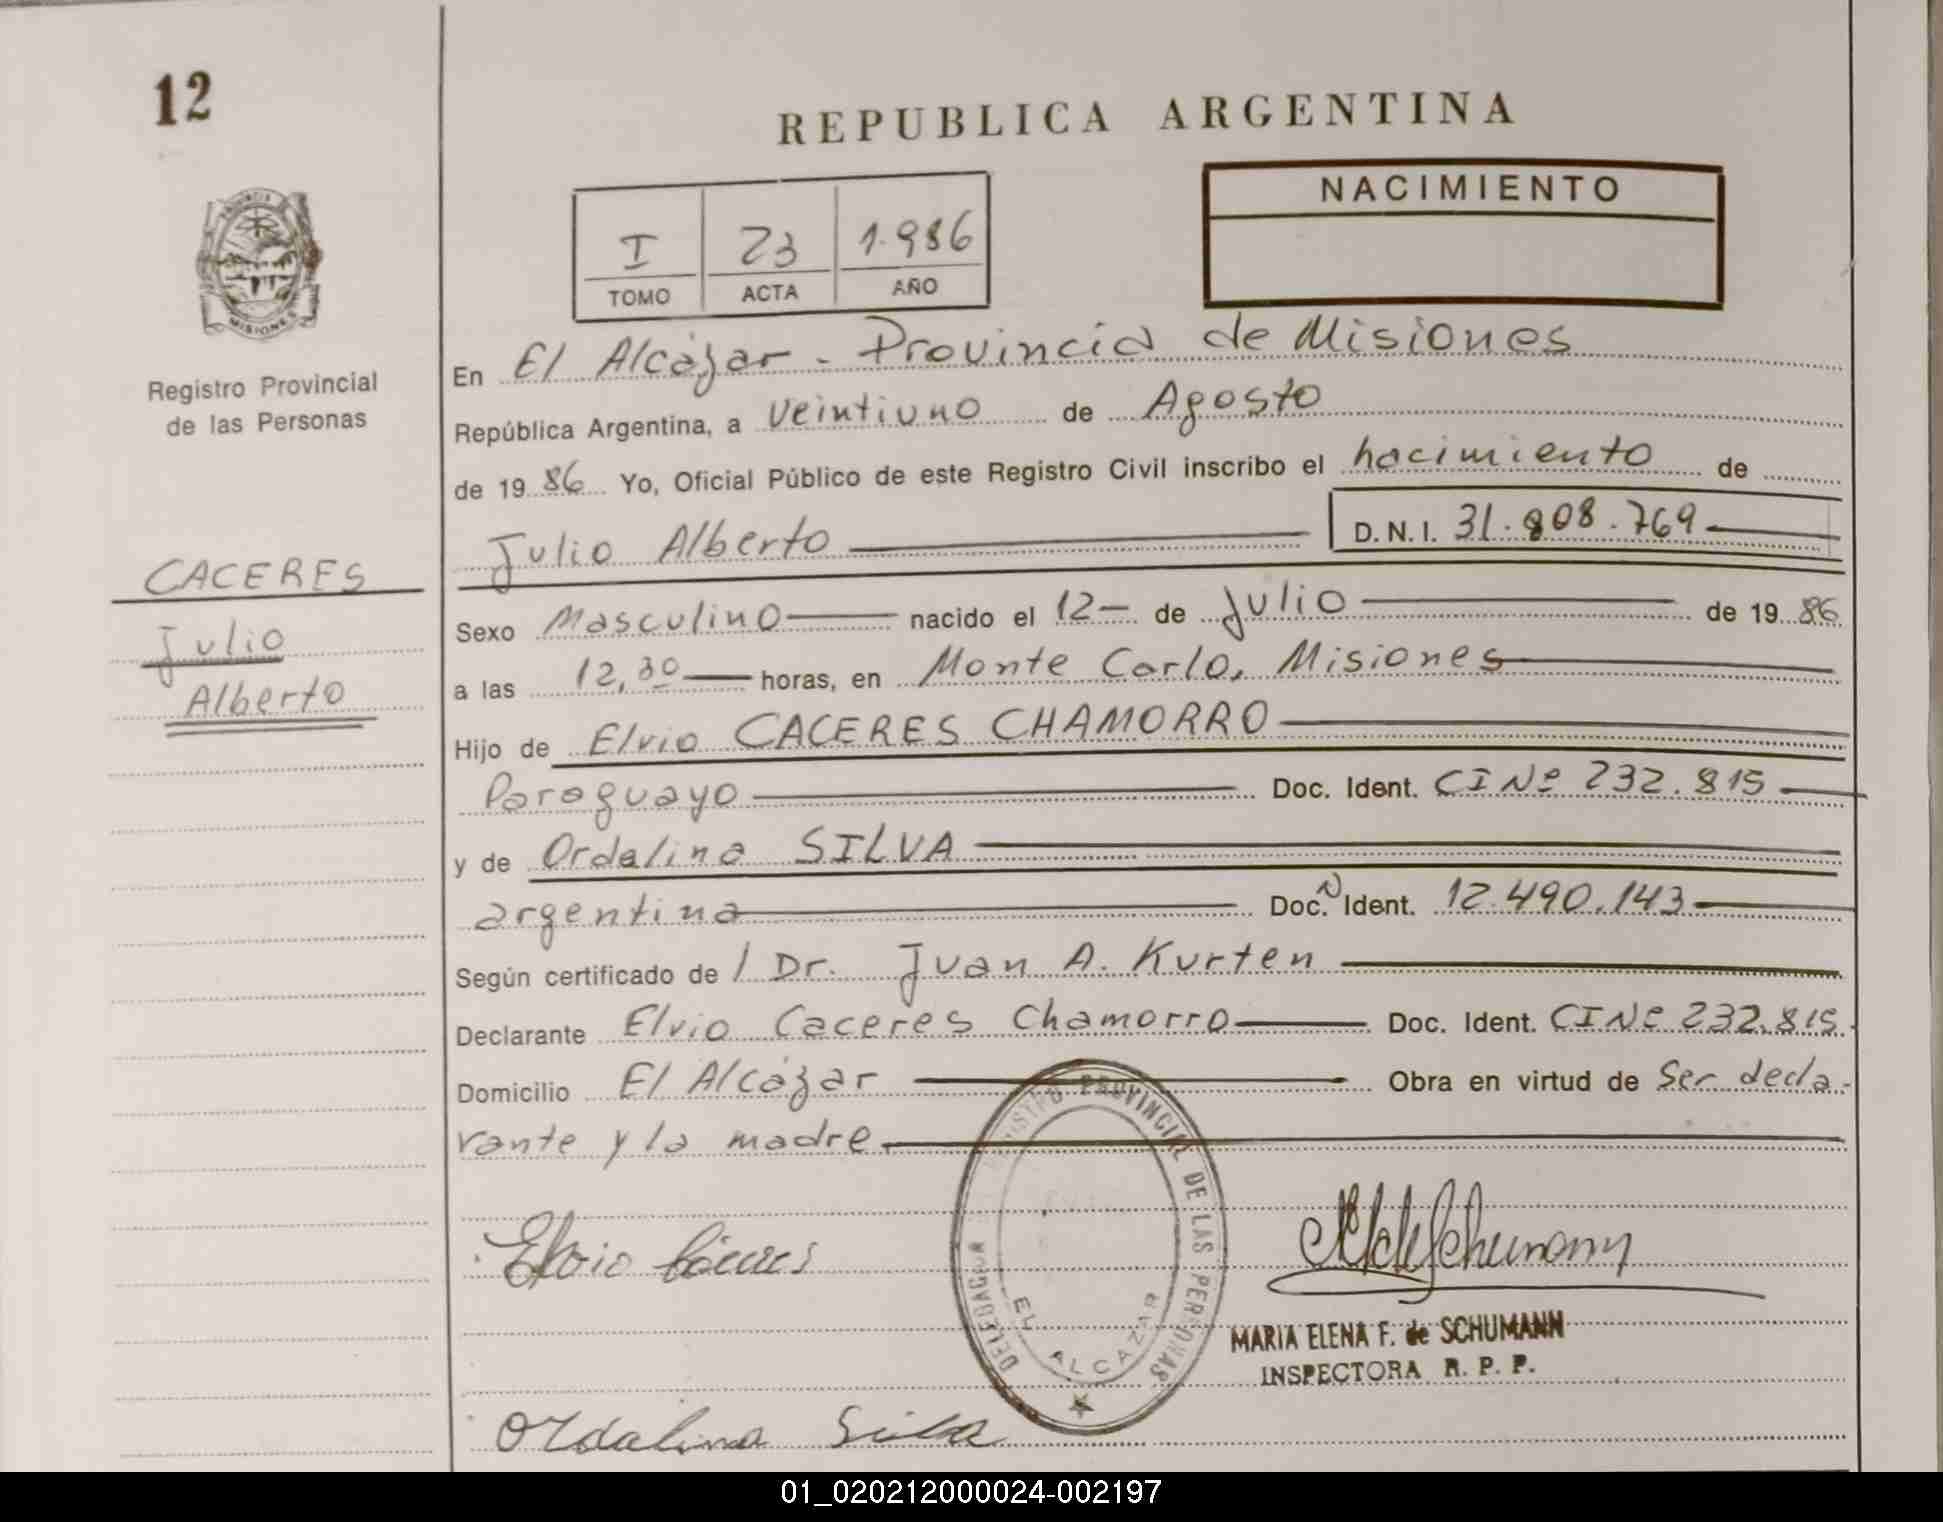 12
REPUBLICA ARGENTINA
NACIMIENTO
I 23 1.986
TOMO ACTA AÑO
PROVINCIA
MISIONES
Registro Provincial
de las Personas
CACERES
Julio
Alberto
En El Alcázar - Provincia de Misiones
República Argentina, a veintiuno de Agosto
de 19 86 Yo, Oficial Público de este Registro Civil inscribo el nacimiento de
Julio Alberto D.N.I. 31.808.769
Sexo Masculino nacido el 12 de Julio de 19 86
a las 12,30 horas, en Monte Carlo, Misiones
Hijo de Elvio CACERES CHAMORRO
Paraguayo Doc. Ident. CI Nº 232.815
y de Ordalina SILVA
argentina Doc. N Ident. 12.490.143
Según certificado de / Dr. Juan A. Kurten
Declarante Elvio Caceres Chamorro Doc. Ident. CI Nº 232.815
Domicilio El Alcázar Obra en virtud de ser decla-
rante y la madre
Elvio Cáceres
REGISTRO PROVINCIAL DE LAS PERSONAS
DELEGACION
EL ALCAZAR
MARIA ELENA F. de SCHUMANN
INSPECTORA R. P. P.
Ordalina Silva
01_020212000024-002197